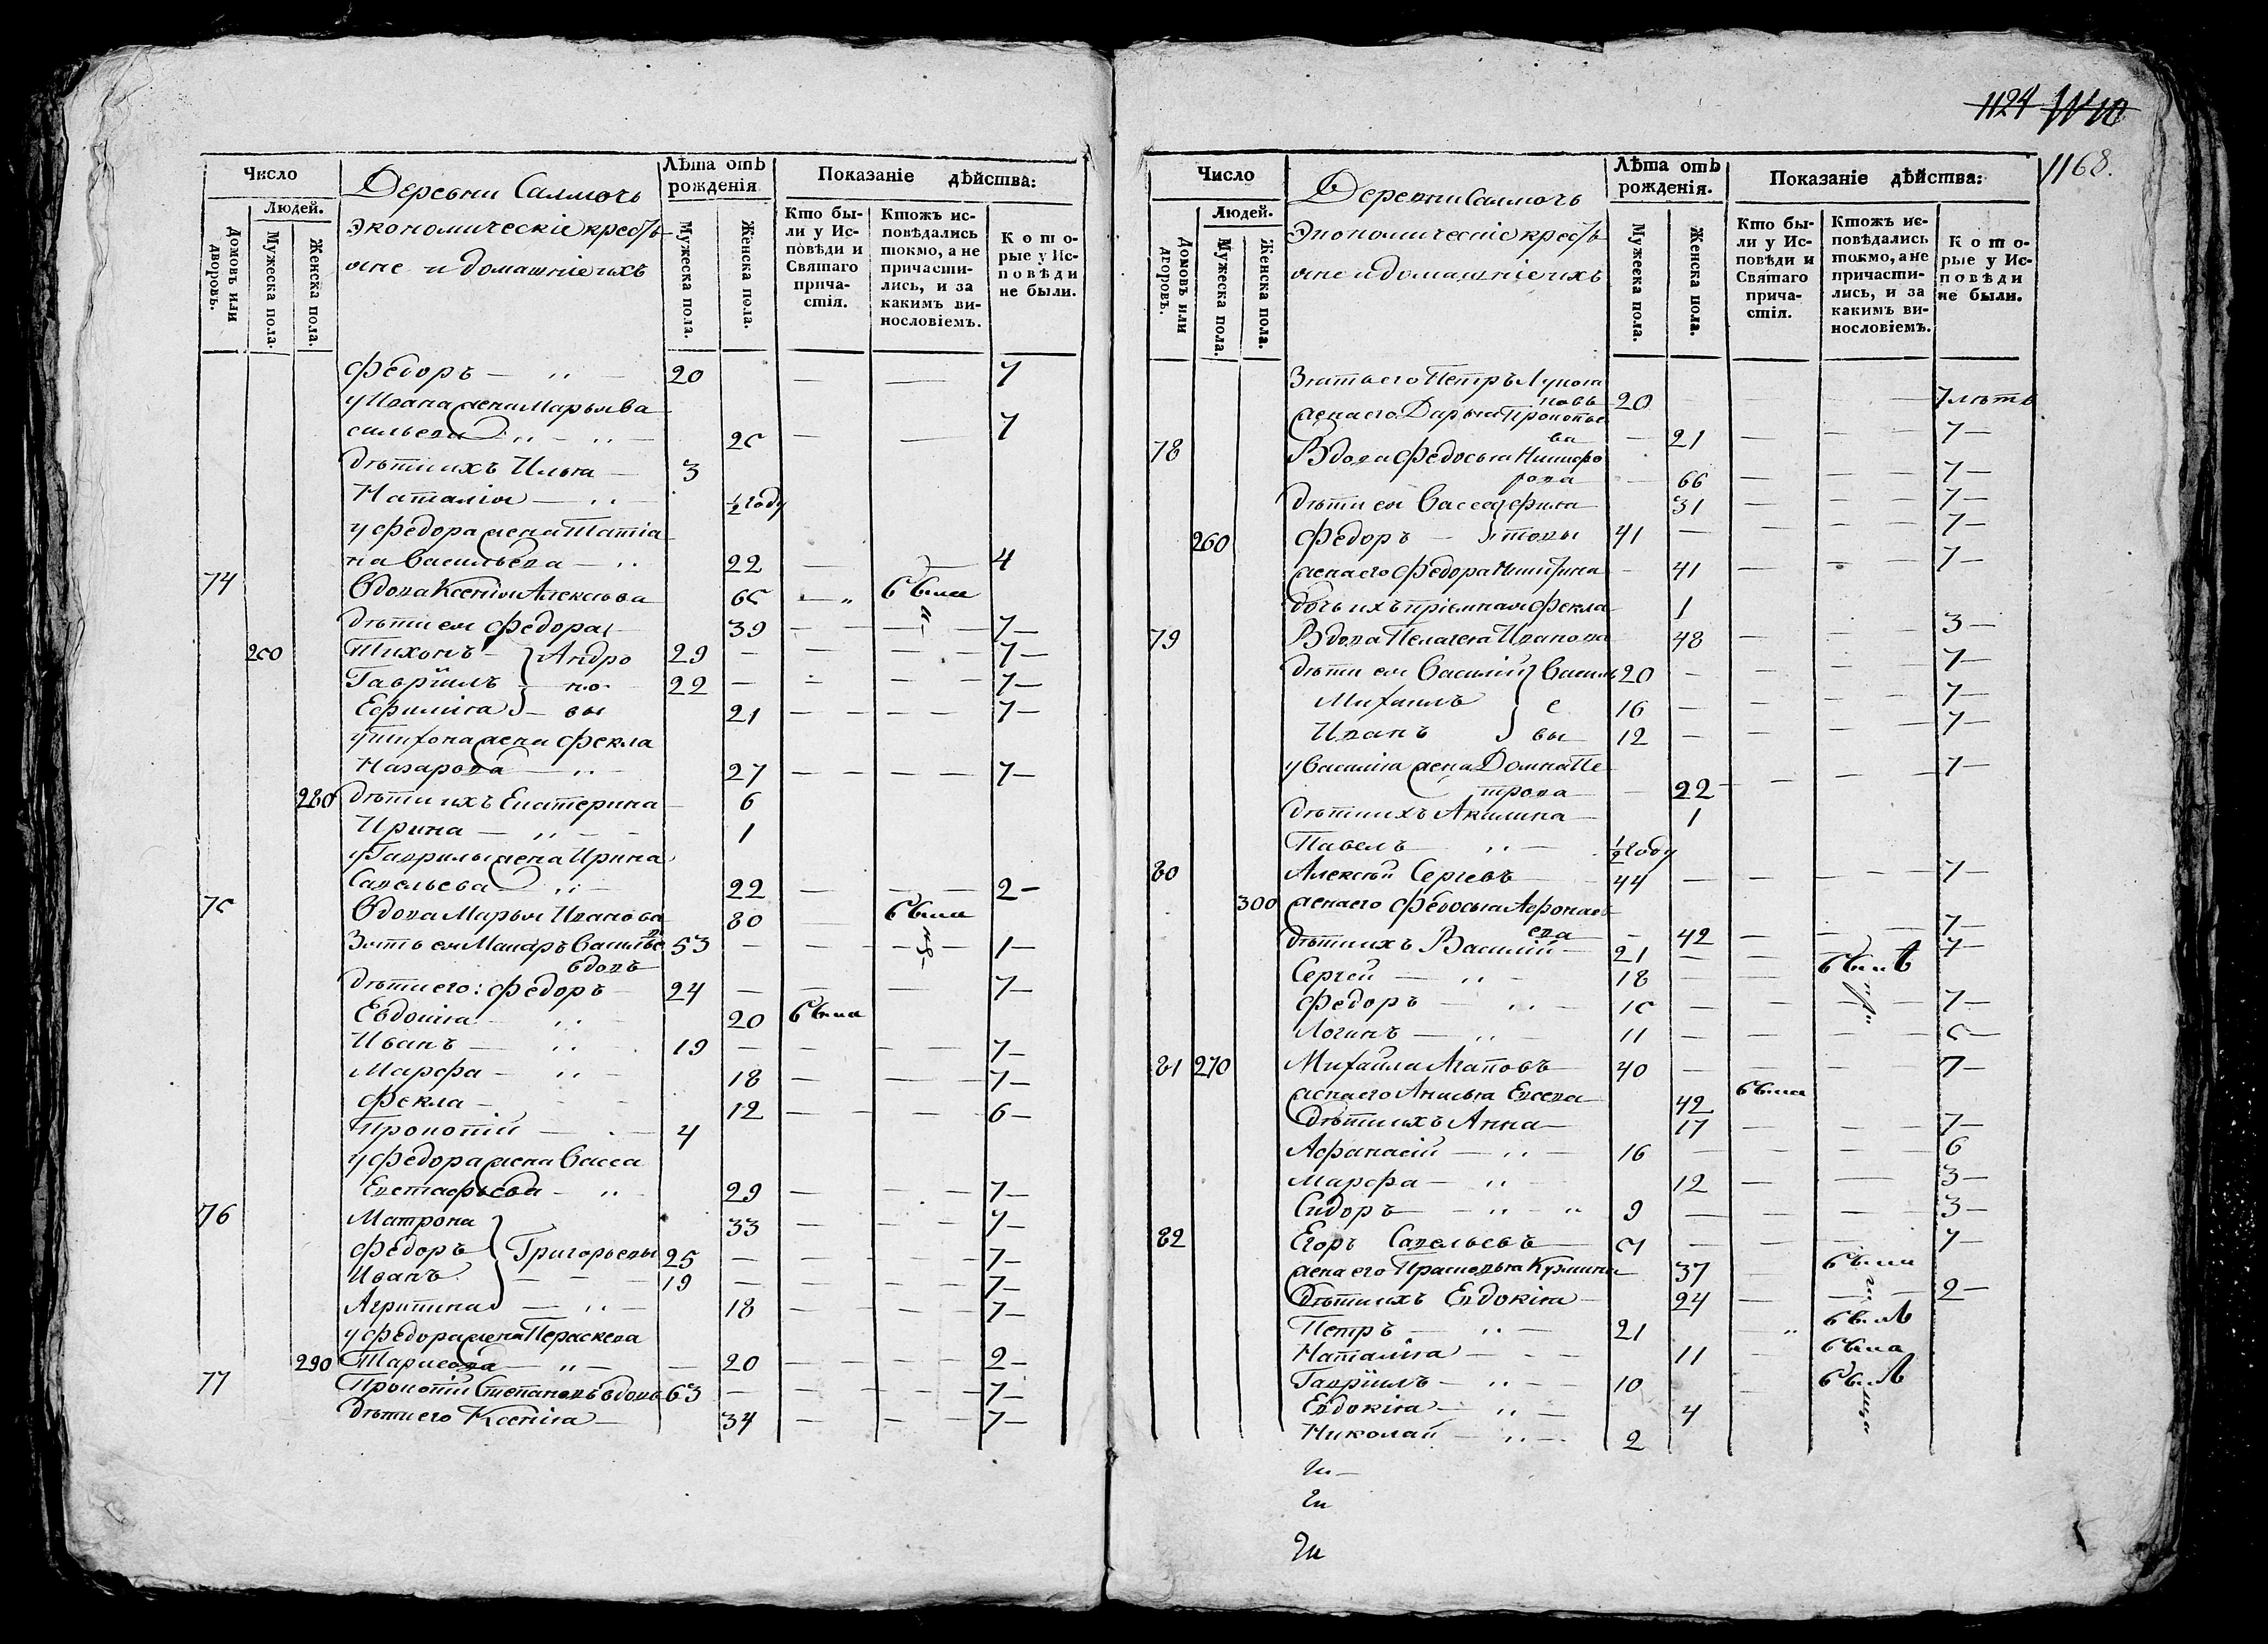 Число
Людей.
Домовъ или дворовъ.
Мужеска пола.
Женска пола.
Деревни Салмочь
Экономическіе кресть
яне и домашніе ихъ
Лѣта отъ рожденія
Мужеска пола.
Женска пола.
Показаніе дѣйства:
Кто бы-
ли у Ис-
повѣди и
Святаго
прича-
стія.
Ктожъ ис-
повѣдались
токмо, а не
причасти-
лись, и за
какимъ ви-
нословіемъ.
Кото-
рые у Ис-
повѣди
не были.
Федоръ — „ — 20 — — 7
у Ивана жена Марья Ва
сильева „ — „ — 25 — — 7
дѣти ихъ Илья — 3
Наталія — „ — ½ году
у Федора жена Татіа
на Васильева — „ 22 — — 4
74 Вдова Ксенія Алексѣева 65 — „ была
дѣти ея Федора 39 — — — 7 —
250 Тихонъ — Андро 29 — — — 7 —
Гавріилъ — но 22 — — — 7 —
Ефимія — вы 21 — — — — 7 —
у Тихона жена Фекла
Назарова — „ — 27 — — — — 7 —
280 дѣти ихъ Екатерина 6
Ирина — „ — 1
у Гаврилы жена Ирина
Савельева „ — 22 — — — 2 —
75 Вдова Марья Иванова 80 была
Зять ея Макаръ Василье 53 — — — — 1 —
въ вдовъ
дѣти его: Федоръ 24 — — — 7 —
Евдокія „ 20 была
Иванъ — „ 19 — — — — 7 —
Марфа — „ — 18 — — 7 —
Фекла — 12 — — — 6 —
Прокопій — 4
у Федора жена Васса
Евстафьева — „ 29 — — 7 —
76 Матрона 33 — — — 7 —
Федоръ Григорьевы 25 — — — 7 —
Иванъ — — — 19 — — — 7 —
Агрипина — „ — 18 — — — 7 —
у Федора жена Параскева
290 Тарасова — „ — — 20 — — — 2 —
77 Прокопій Степановъ вдовъ 63 — — — — 7 —
дѣти его Ксенія — 34 — — — 7 —
1124 1110
1168.
Число
Людей.
Домовъ или дворовъ.
Мужеска пола.
Женска пола.
Деревни Салмочь
Экономическіе кресть
яне и домашніе ихъ
Лѣта отъ рожденія.
Мужеска пола.
Женска пола.
Показаніе дѣйства:
Кто бы-
ли у Ис-
повѣди и
Святаго
прича-
стія.
Ктожъ ис-
повѣдались
токмо, а не
причасти-
лись, и за
какимъ ви-
нословіемъ.
Кото-
рые у Ис-
повѣди
не были.
Зять его Петръ
новъ 20 — — — 7 лѣтъ
жена его Дарья Прокопье
ва — 21 — — — 7 —
78 Вдова Федосья Никифо
рова — 66 — — — 7 —
дѣти ея Васса 31 — — — 7 —
260 Федоръ — 41 — — — — 7 —
жена его Федора Никитина — 41 — — — 7 —
дочь ихъ пріемная Фекла 1
79 Вдова Пелагея Иванова 48 — — — 3 —
дѣти ея Василій Василь 20 — — — 7 —
Михаилъ е 16 — — — 7 —
Иванъ вы 12 — — — — 7 —
у Василія жена Домна Пе
трова — 22 — — — — 7 —
дѣти ихъ Акилина — 1
Павелъ — „ — ½ году
80 Алексѣй Сергѣевъ 44 — — — — 7 —
300 жена его Федосья Афонась
ева — 42 — — — 7 —
дѣти ихъ Василій 21 — — 7 —
Сергей — „ — 18 — — былъ
Федоръ — „ — 15 — — — — 7 —
Логинъ — „ — 11 — — — — 5 —
81 270 Михайла Агаповъ 40 — — 7 —
жена его Анисья Евсева 42 была
Дѣти ихъ Анна — 17 — — — 7 —
Афанасій — „ — 16 — — — — 6
Марфа — „ 12 — — 3 —
Сидоръ — „ — „ 9 — — — — 3 —
82 Егоръ Савельевъ 51 — — — 7 —
жена его Прасковья Кузмина 37 — была
Дѣти ихъ Евдокія 24 — — — 2 —
Петръ — „ — 21 — „ былъ
Наталія — — 11 — была
Гавріилъ — „ — 10 былъ
Евдокія — „ — 4
Николай — „ — 2